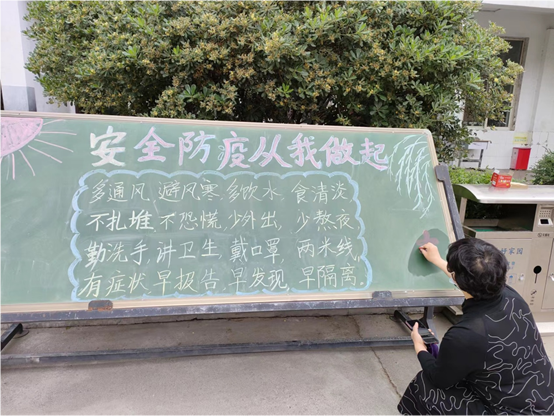 安全防疫从我做起
多通风,避风寒,多饮水,食清淡
不扎堆,不恐慌,少外出,少熬夜
勤洗手,讲卫生,戴口罩,两米线,
有症状,早报告,早发现,早隔离.